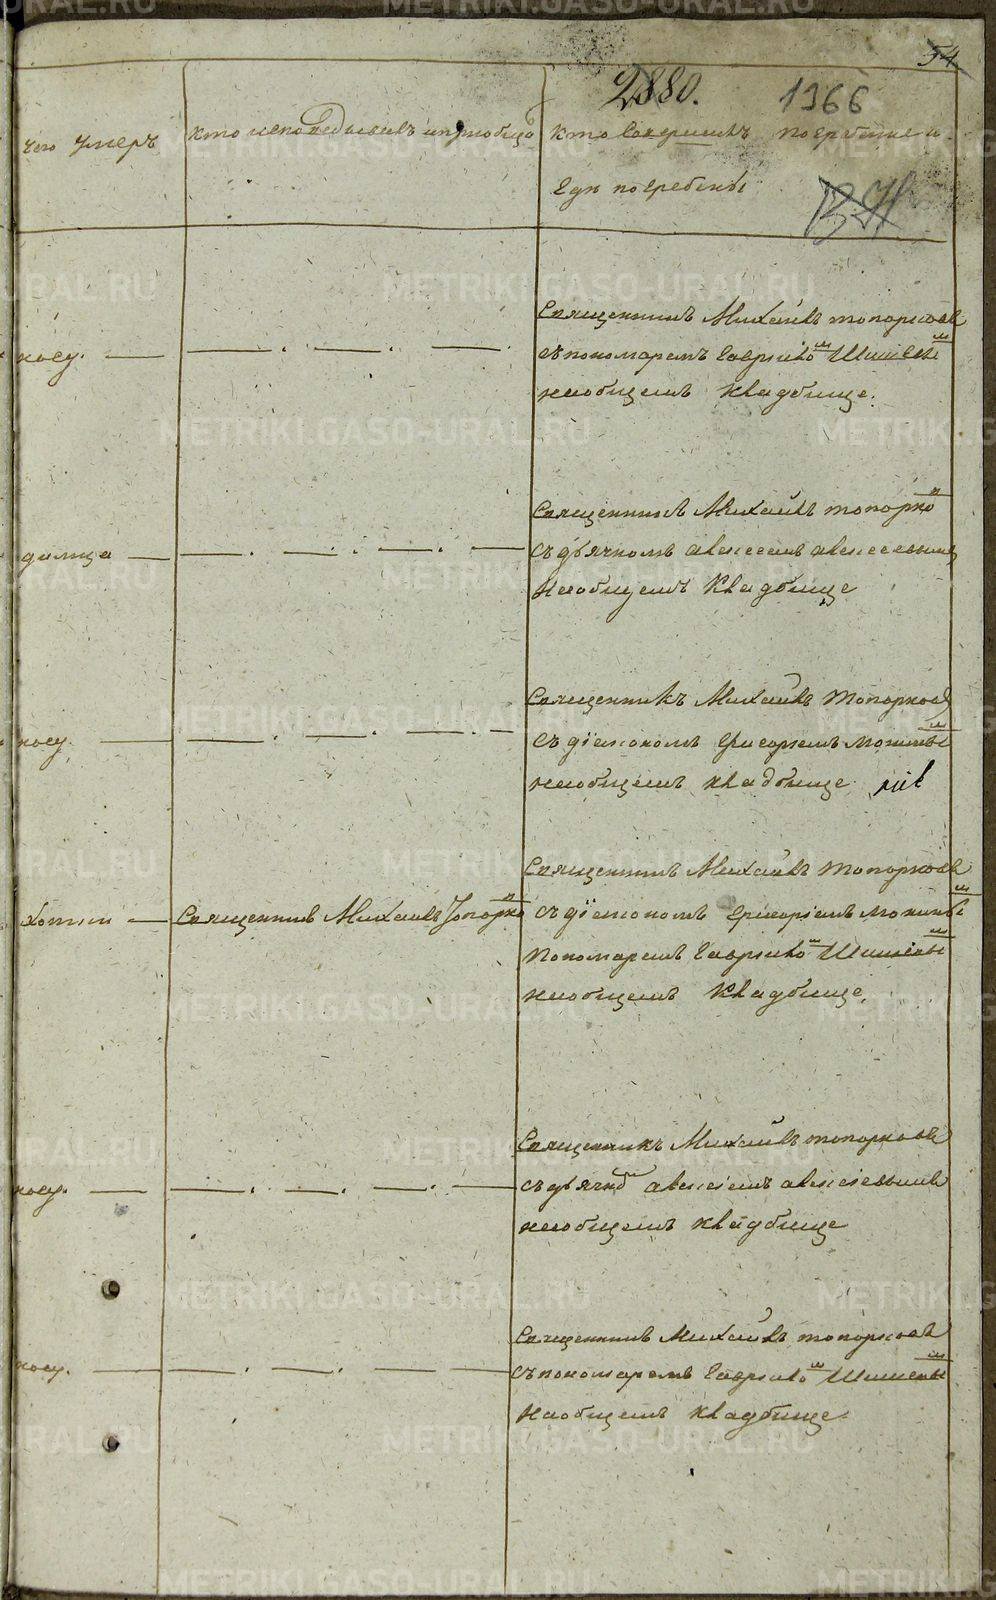 54
2880. 1366
чего умеръ
кто исповѣдывалъ и приобща
кто совершалъ погребение и
гдѣ погребены
носу.
Священникъ Михаилъ топорковъ
съ пономаремъ Гаврилом Шишевым
на общемъ кладбище.
димца
Священникъ Михаилъ топорков
съ дьячкомъ алексеемъ алексеевымъ
на общемъ кладбище
носу
Священникъ Михаилъ Топорковъ
съ діакономъ Григорьемъ
на общемъ кладбище
Священникъ Михаилъ Топорков
Священникъ Михаилъ Топорковъ
съ діакономъ Григоріемъ
Пономаремъ Гаврилом Шишевым
на общемъ кладбище.
носу.
Священникъ Михаилъ топорковъ
съ дьячком алексіемъ алексіевымъ
на общемъ кладбище
носу.
Священникъ Михаилъ топорковъ
съ пономаремъ Гаврилом Шишевым
на общемъ кладбище.